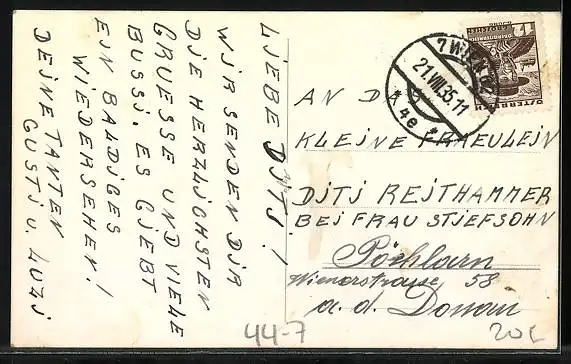 LJEBE DJTJ !
WJR SENDEN DJR
DJE HERZLJCHSTEN
GRUESSE UND VJELE
BUSSJ. ES GJEBT
EJN BALDJGES
WJEDERSEHEN !
DEJNE TANTEN
GUSTJ U. LUZJ
7 WIEN
21.VIII.35.11
* 4e *
ÖSTERREICH
AN D
KLEJNE FRAEULEJN
DJTJ REJTHAMMER
BEJ FRAU STJEFSOHN
Pöchlarn
Wienerstrasse 58
a. d. Donau
44-7